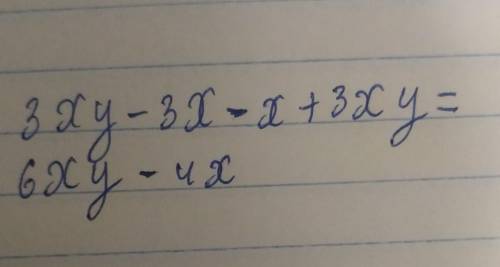 3xy - 3x - x + 3xy =
6xy - 4x